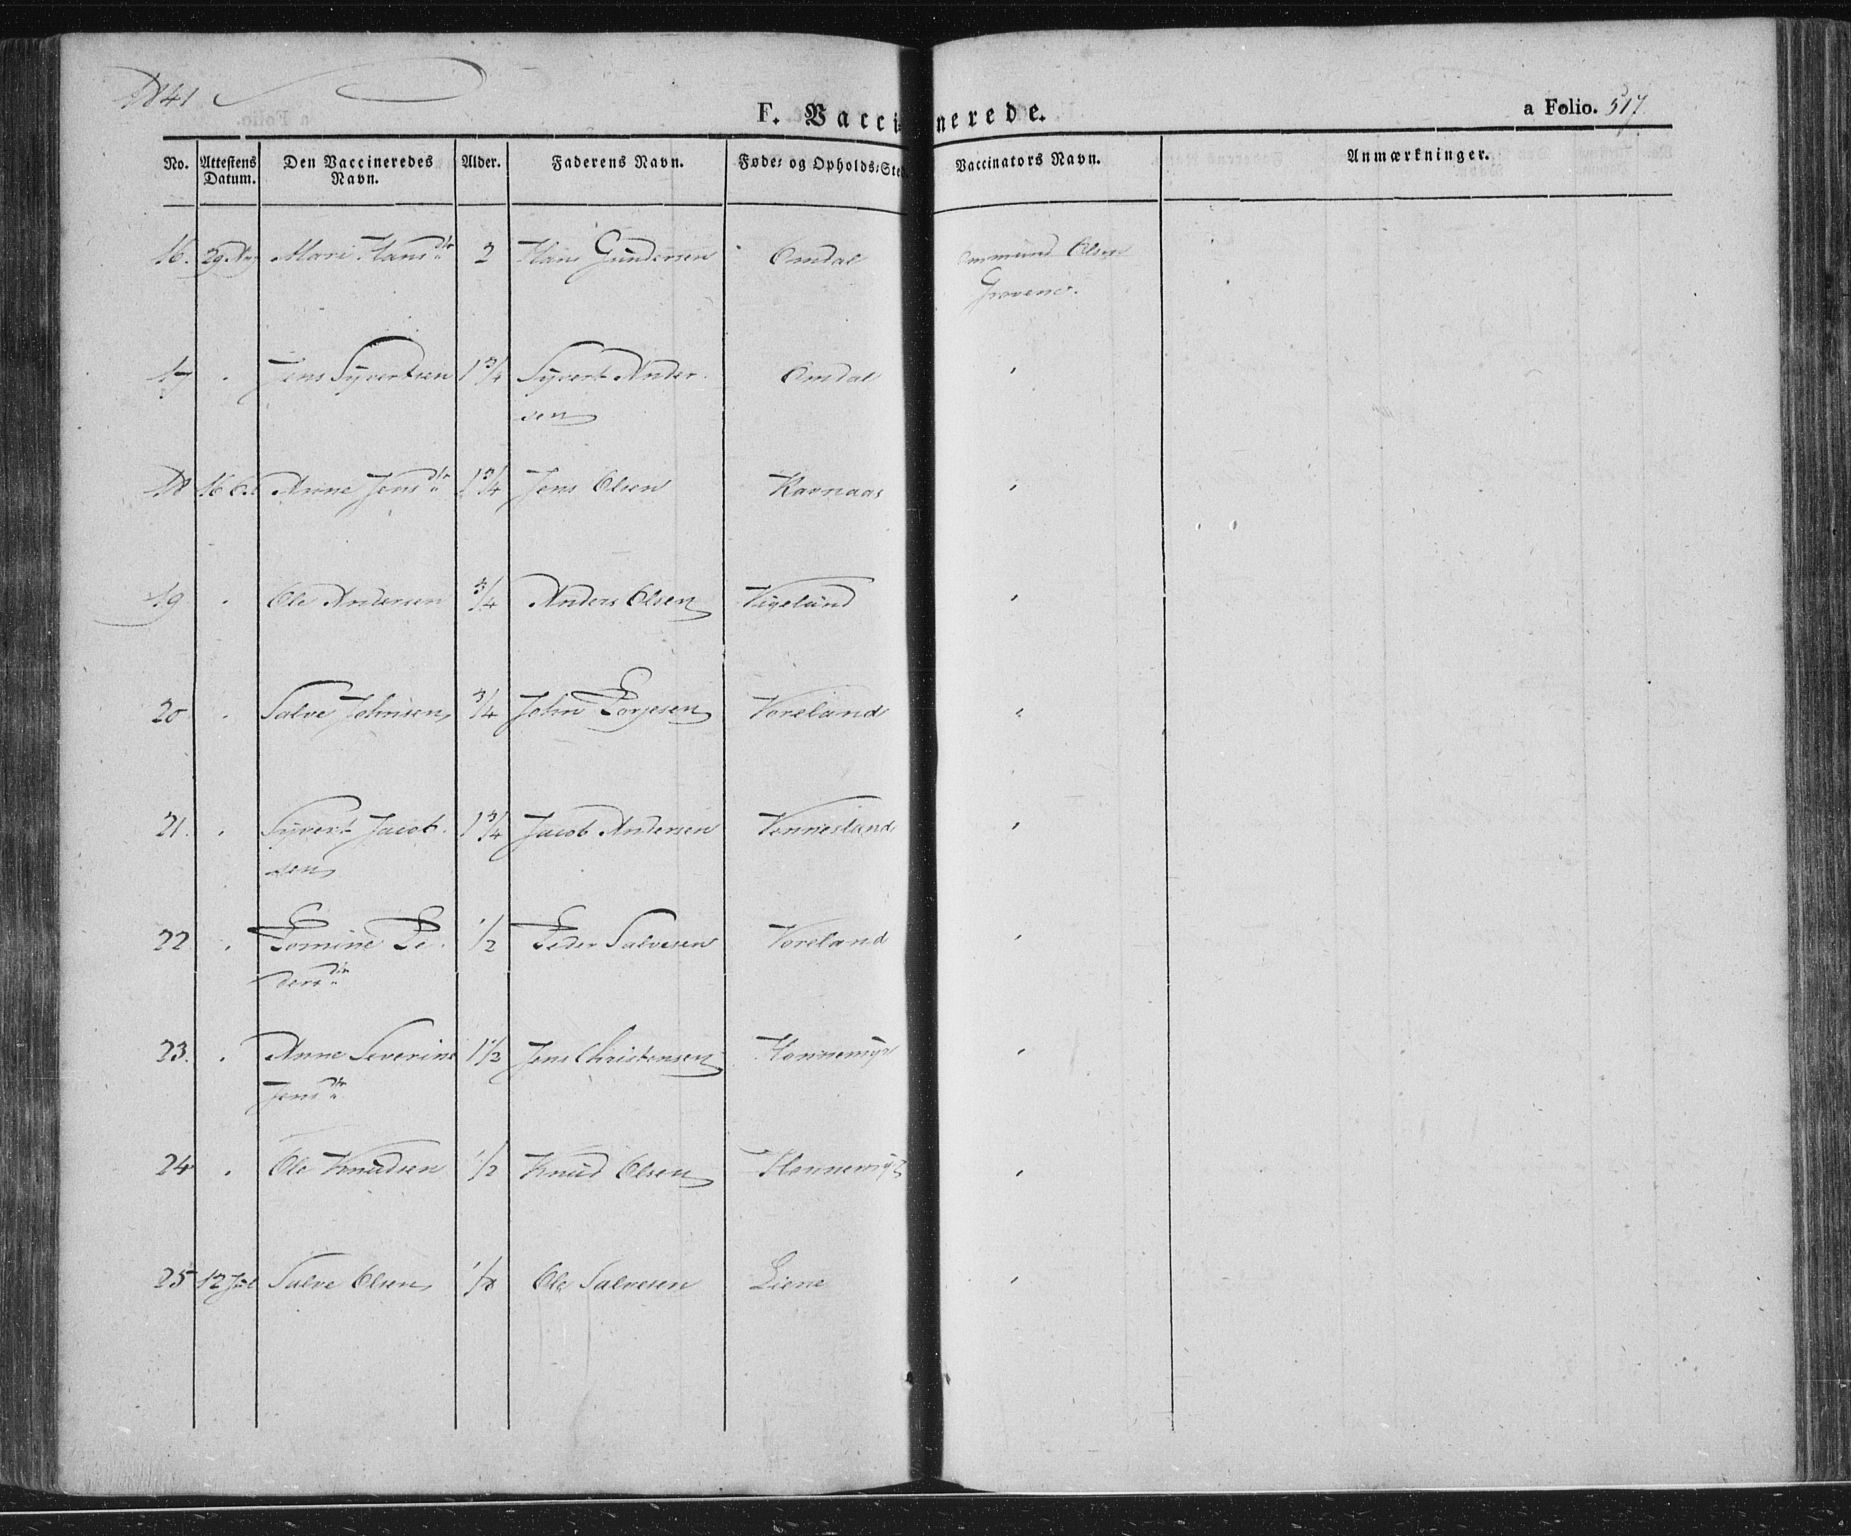 1841
F. Vaccinerede.
a Folio. 517
No. Attestens Datum. Den Vaccineredes Navn. Alder. Faderens Navn. Føde- og Opholds-Sted Vaccinators Navn. Anmærkninger.
16. 29 Hans Mari Hansdtr 2 Hans Gundersen Omdal Ommund Olsen
Grovene.
17 . Jens Syvertsen 1 3/4 Syvert Ander- Omdal "
sen
18 16 Anne Jensdtr 1 3/4 Jens Olsen Ravnaas "
19 . Ole Andersen 3/4 Anders Olsen Vigeland "
20 . Salve Johnsen 3/4 John Torjesen Voreland "
21. . Syvert Jacob- 1 3/4 Jacob Andersen Vennesland "
sen
22 . Tomine Pe- 1/2 Peder Salvesen Voreland "
dersdtr
23. . Anne Severine 1 1/2 Jens Christensen Honnemyr "
Jensdtr
24 . Ole Knudsen 1/2 Knud Olsen Honnemyr "
25 12 Jul Salve Olsen 1/8 Ole Salvesen Liene "